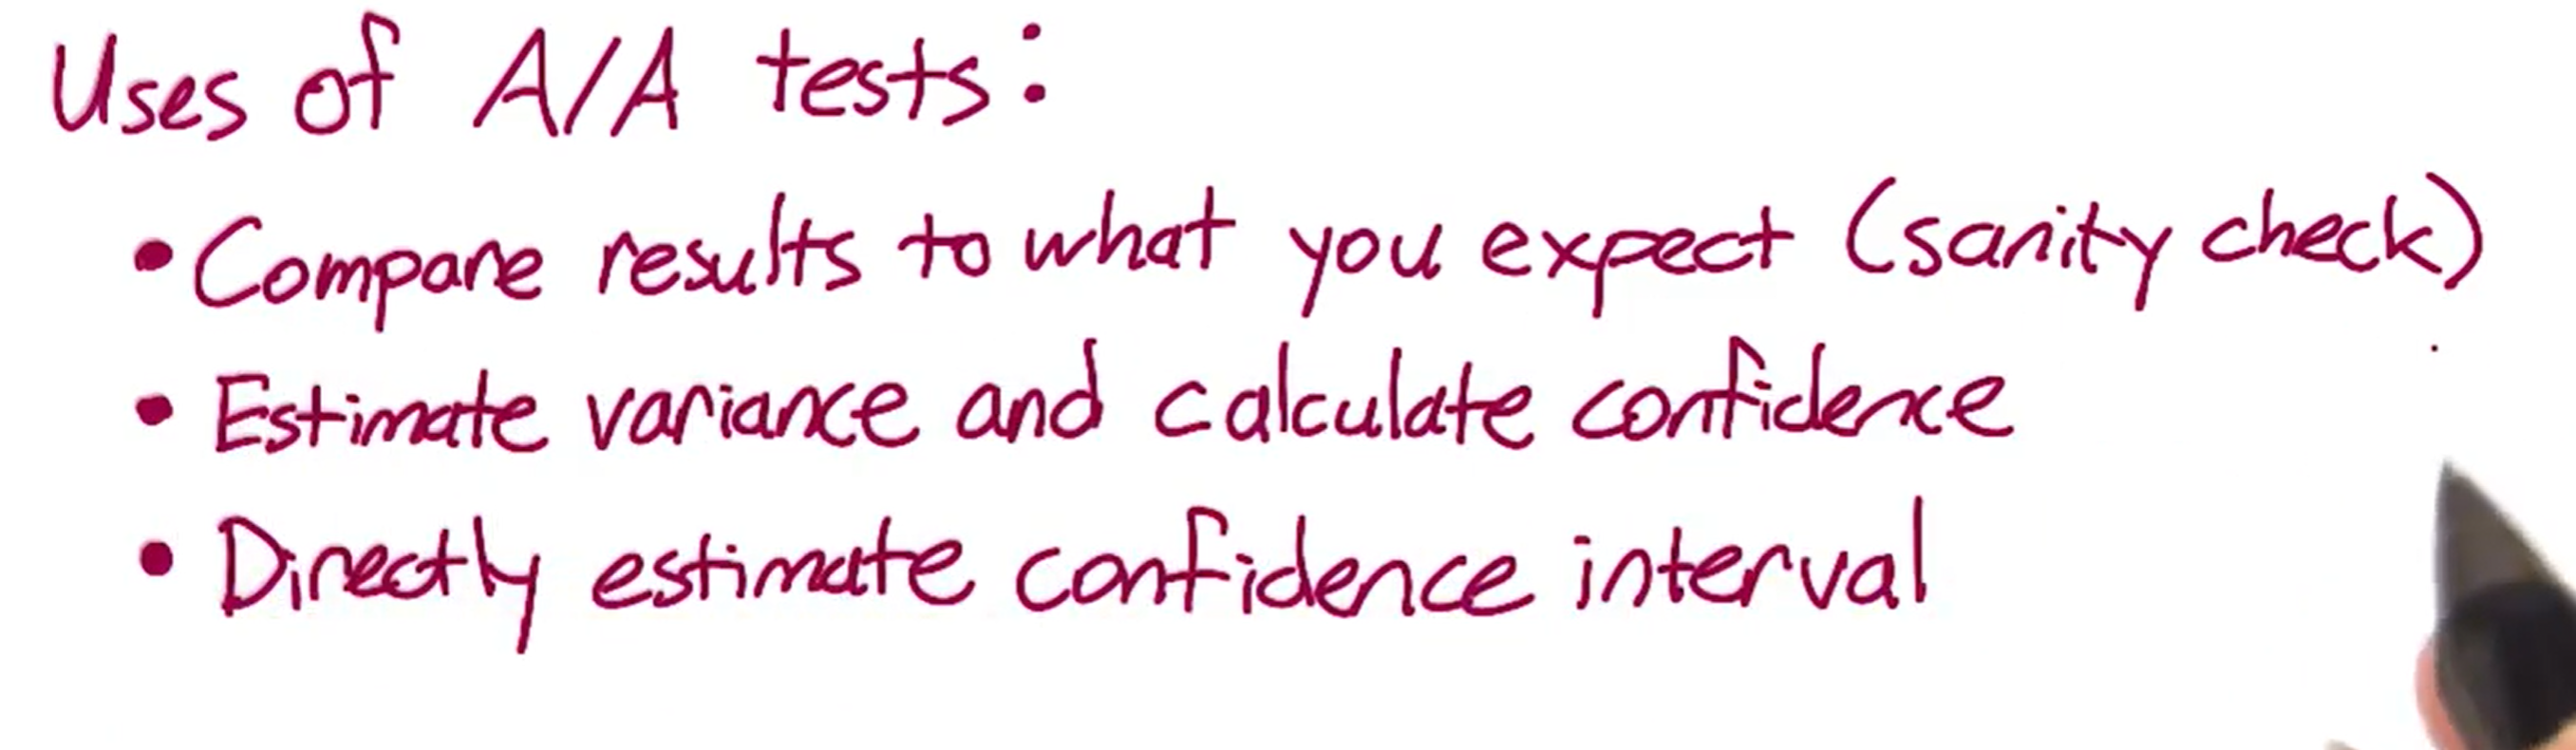 Uses of A/A tests:
• Compare results to what you expect (sanity check)
• Estimate variance and calculate confidence
• Directly estimate confidence interval